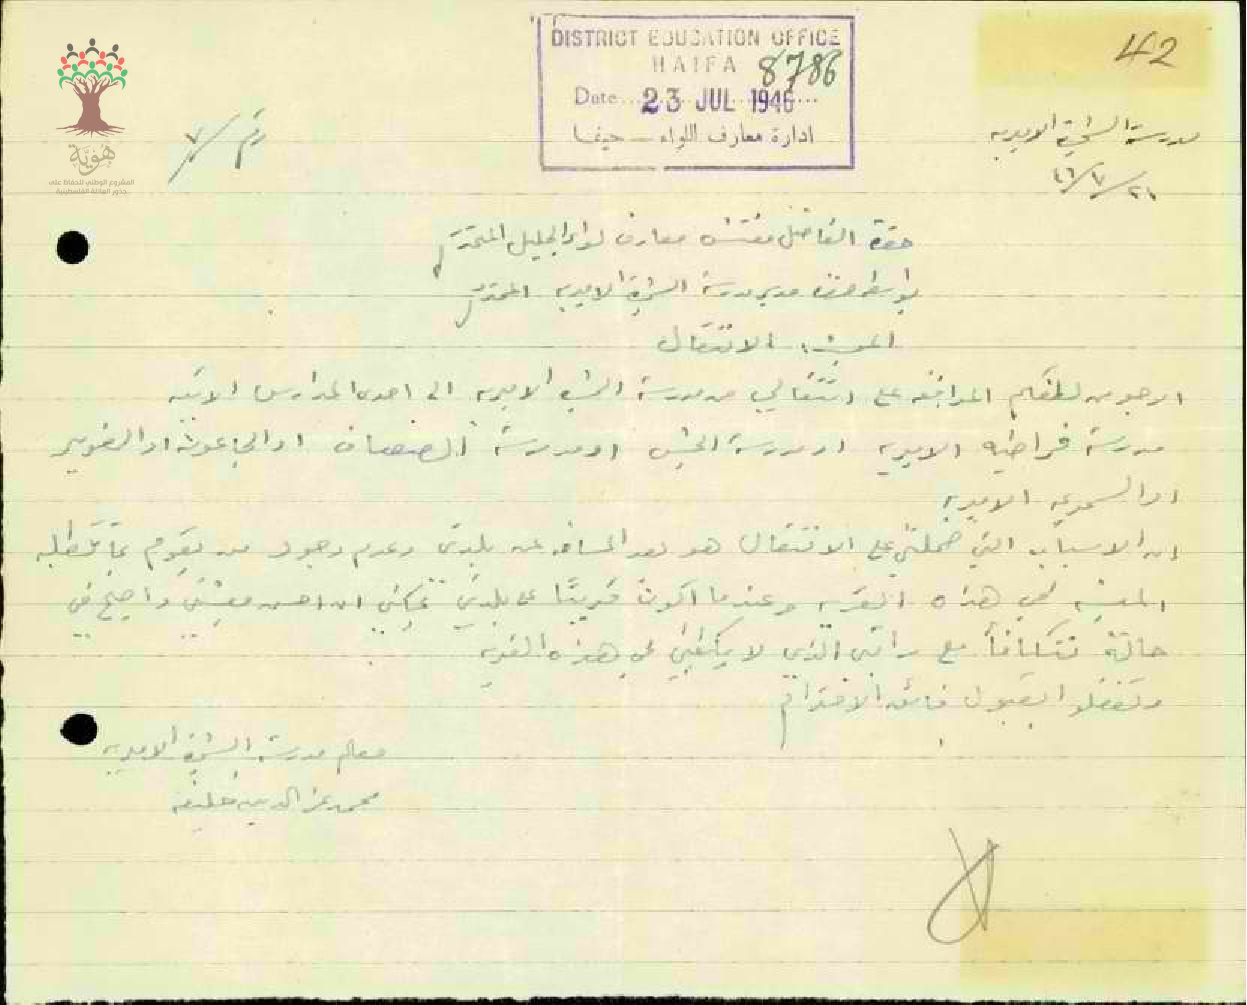 42
DISTRICT EDUCATION OFFICE
HAIFA 8786
Date... 23 JUL 1946...
ادارة معارف اللواء — حيفا
هويّة
المشروع الوطني للحفاظ على
جذور العائلة الفلسطينية
رقم / ٧
مدرسة الشجرة الاميريه
٢١/٧/٤٦
حضرة الفاضل مفتش معارف لواء الجليل المحترم
بواسطة حضرة مدير مدرسة الشجرة الاميريه المحترم
الانتقال
ارجو من لطفكم الموافقه على انتقالي من مدرسة الشجرة الاميريه الى احدى المدارس الاتيه
مدرسة فراضيه الاميريه او مدرسة الجش او مدرسة الصفصاف او الجاعونه او الغوير
او السموعي الاميريه
ان الاسباب التي حملتني على الانتقال هو بعد المسافه عن بلدتي وعدم وجود من يقوم بما تتطلبه
المعيشه في هذه القريه وعندما اكون قريبًا من بلدتي يمكنني ان احسن معيشتي واصبح في
حالة تتكافأ مع راتبي الذي لا يكفيني في هذه القريه
وتفضلوا بقبول فائق الاحترام
معلم مدرسة الشجرة الاميريه
محمد عز الدين خليفه